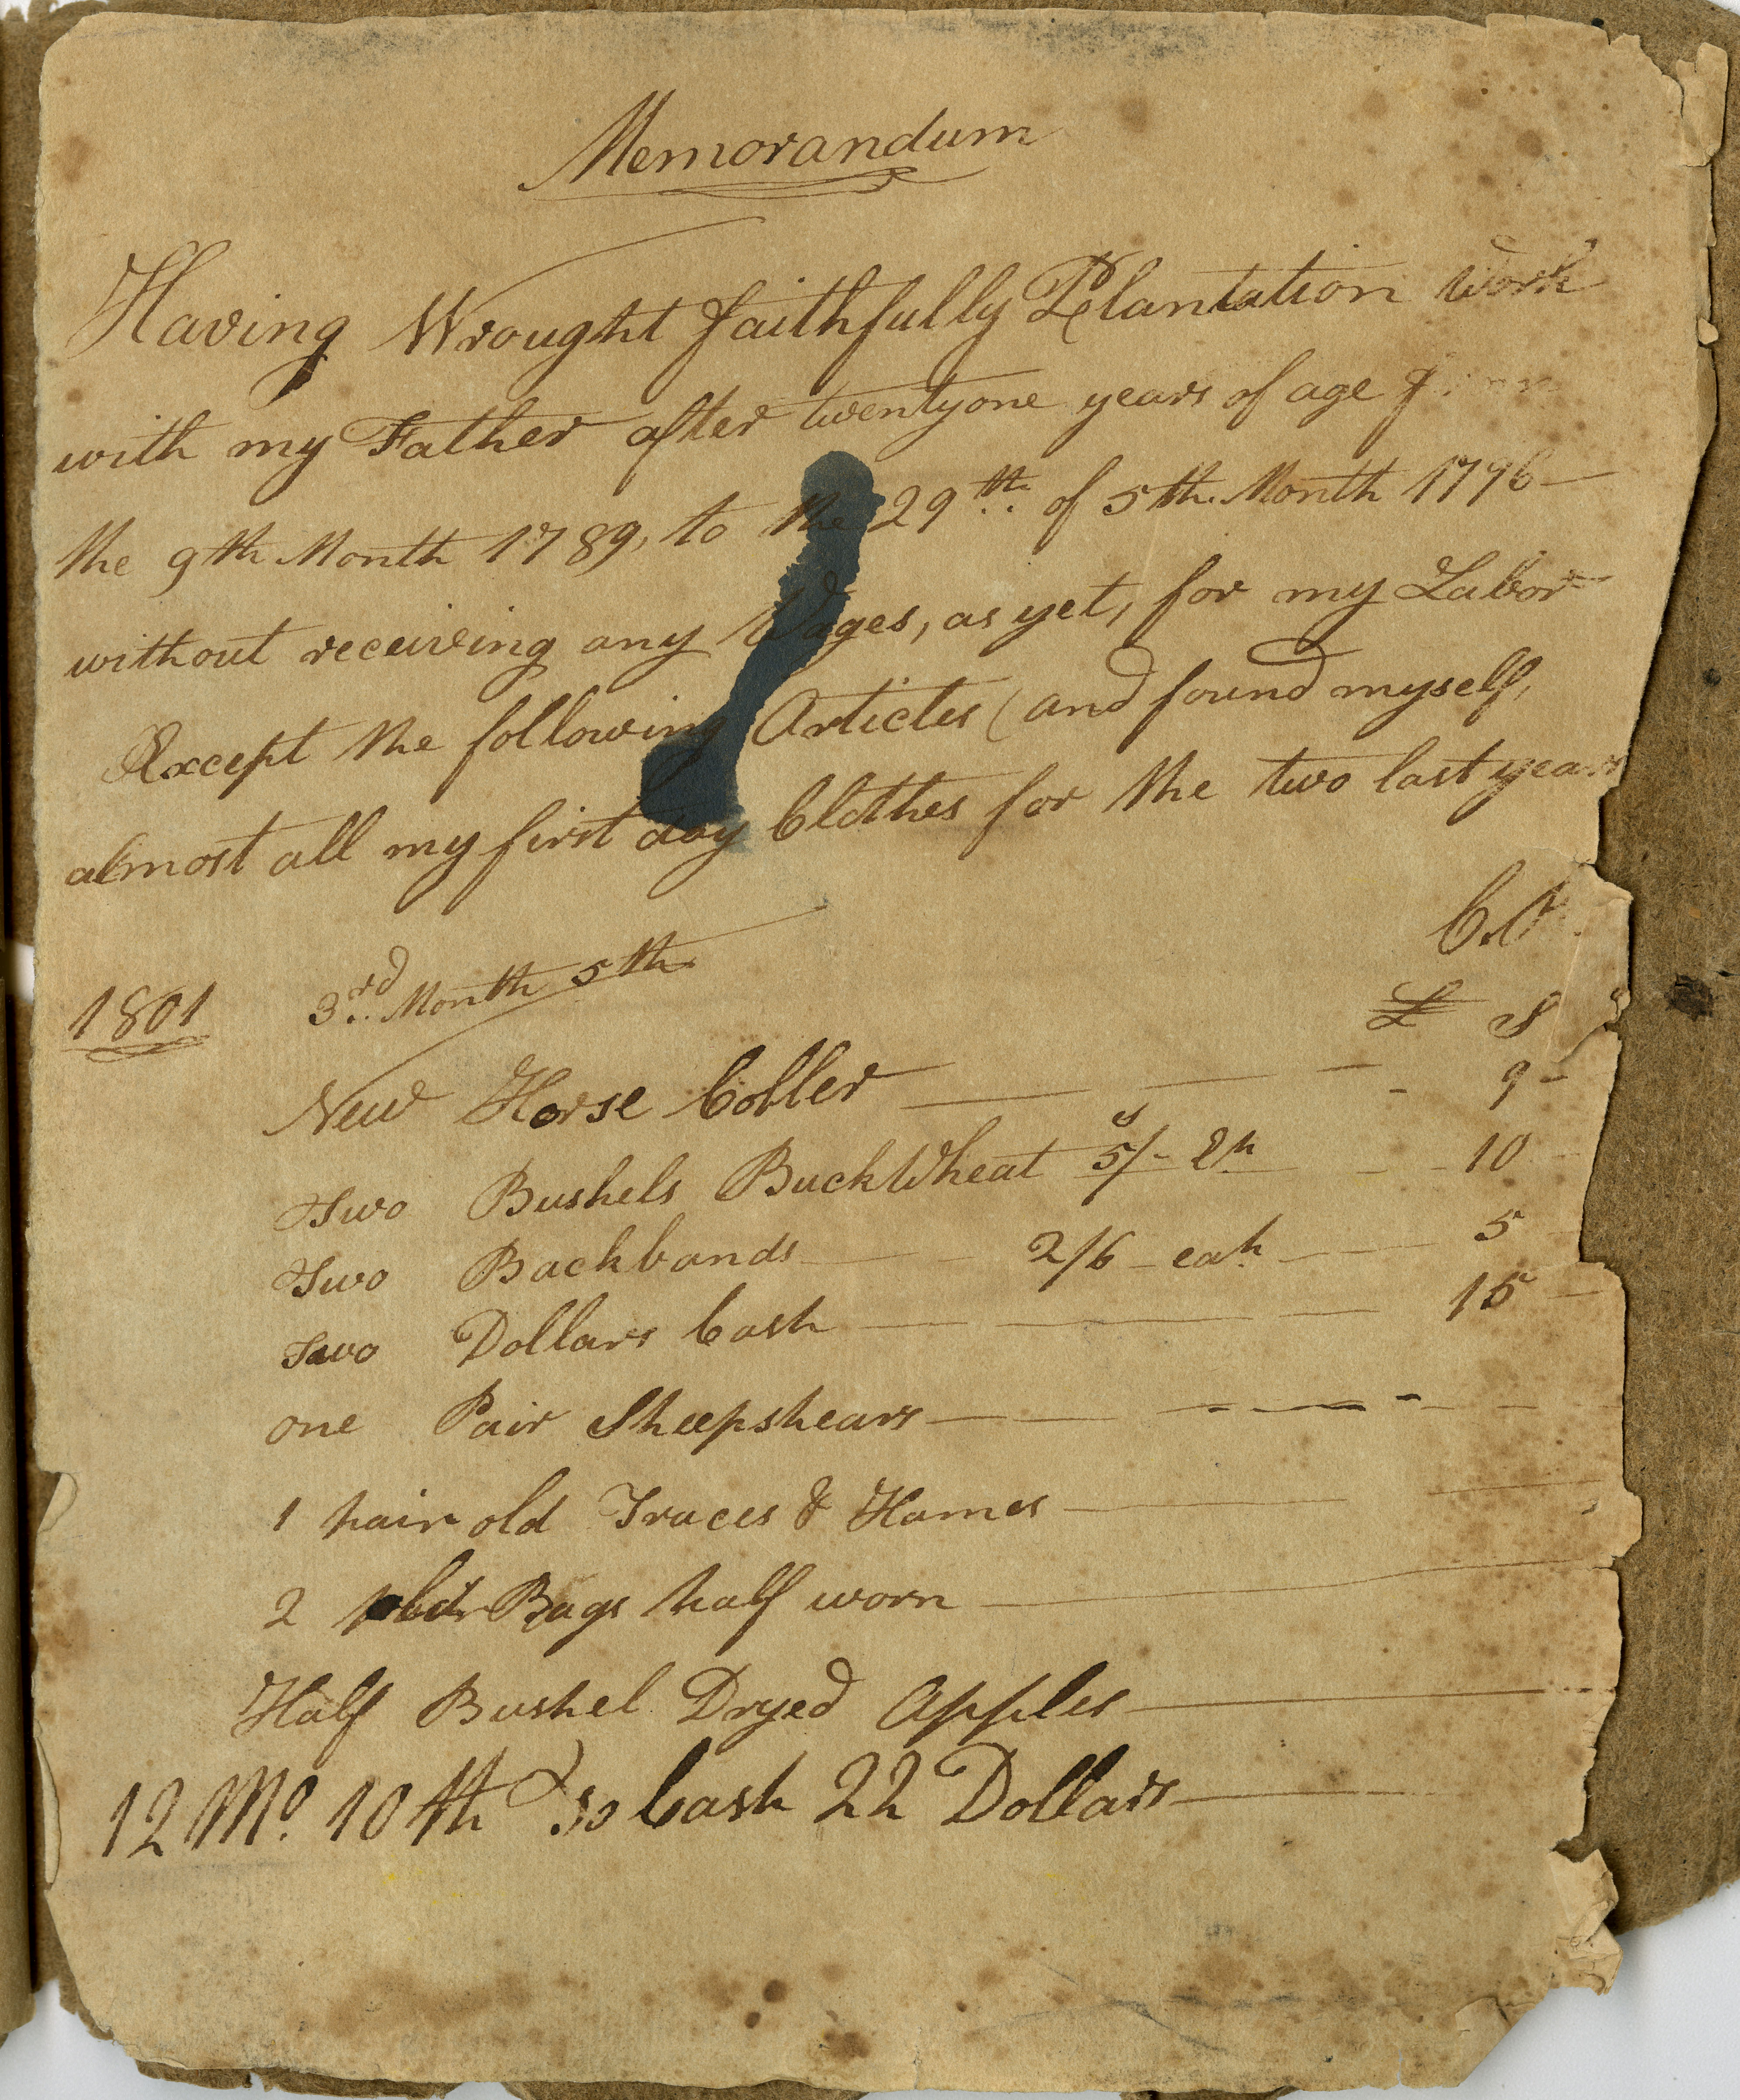 Memorandum
Having Wrought faithfully Plantation work
with my Father after twentyone years of age from
the 9th Month 1789, to the 29th of 5th Month 1796 —
without receiving any Wages, as yet, for my Labor
Except the following Articles (and found myself,
almost all my first day Clothes for the two last years
Cr.
1801 3rd Month 5th £ S
New Horse Coller — — — - 9 -
Two Bushels BuckWheat 5/- - - 10
Two Backbands — 2/6 - eah — 5
Two Dollars Cash — — — 15
one Pair Sheepshears — — —
1 pair old Traces & Hames —
2 Bags half worn —
Half Bushel Dryed Apples —
12 Mo. 10th Cash 22 Dollars —